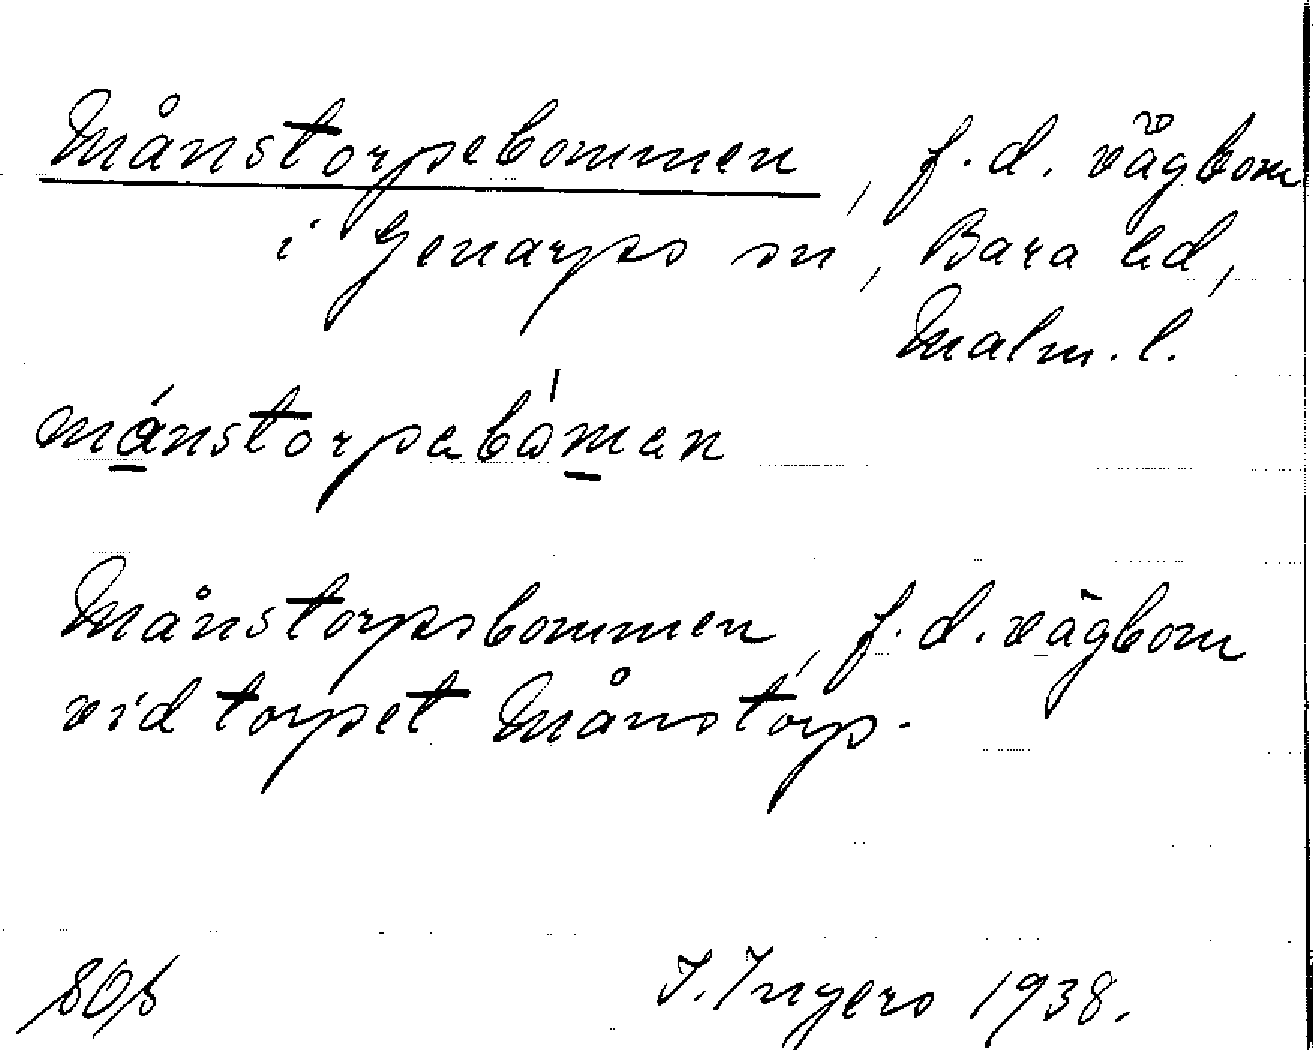 Månstorpebommen, f.d. vägbom
i Genarps sn, Bara hd,
Malm. l.
månstorpabòman
Månstorpsbommen, f.d. vägbom
vid torpet Månstorp.
I. Ingers 1938.